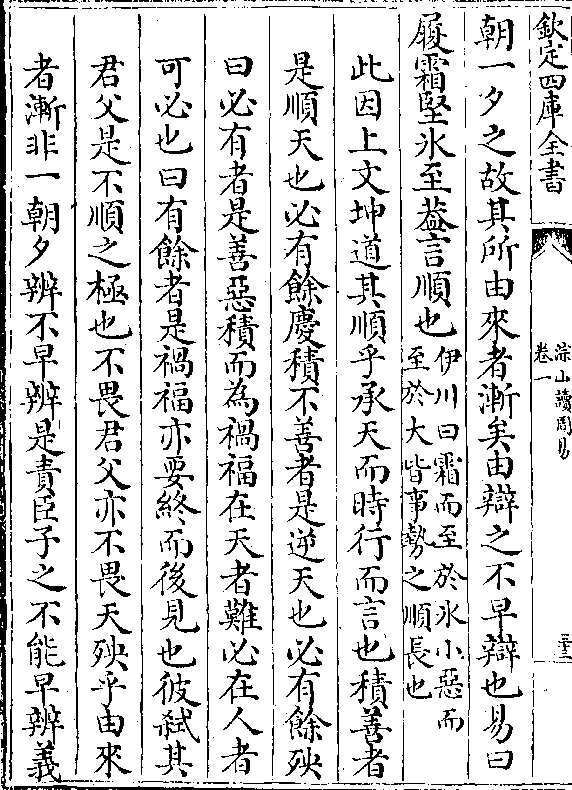 欽定四庫全書
涂山讀周易
卷一
三十三
朝一夕之故其所由來者漸矣由辯之不早辯也易曰
履霜堅氷至葢言順也
伊川曰霜而至於氷小惡而
至於大皆事勢之順長也
此因上文坤道其順乎承天而時行而言也積善者
是順天也必有餘慶積不善者是逆天也必有餘殃
曰必有者是善惡積而為禍福在天者難必在人者
可必也曰有餘者是禍福亦要終而後見也彼弑其
君父是不順之極也不畏君父亦不畏天殃乎由來
者漸非一朝夕辨不早辨是責臣子之不能早辨義